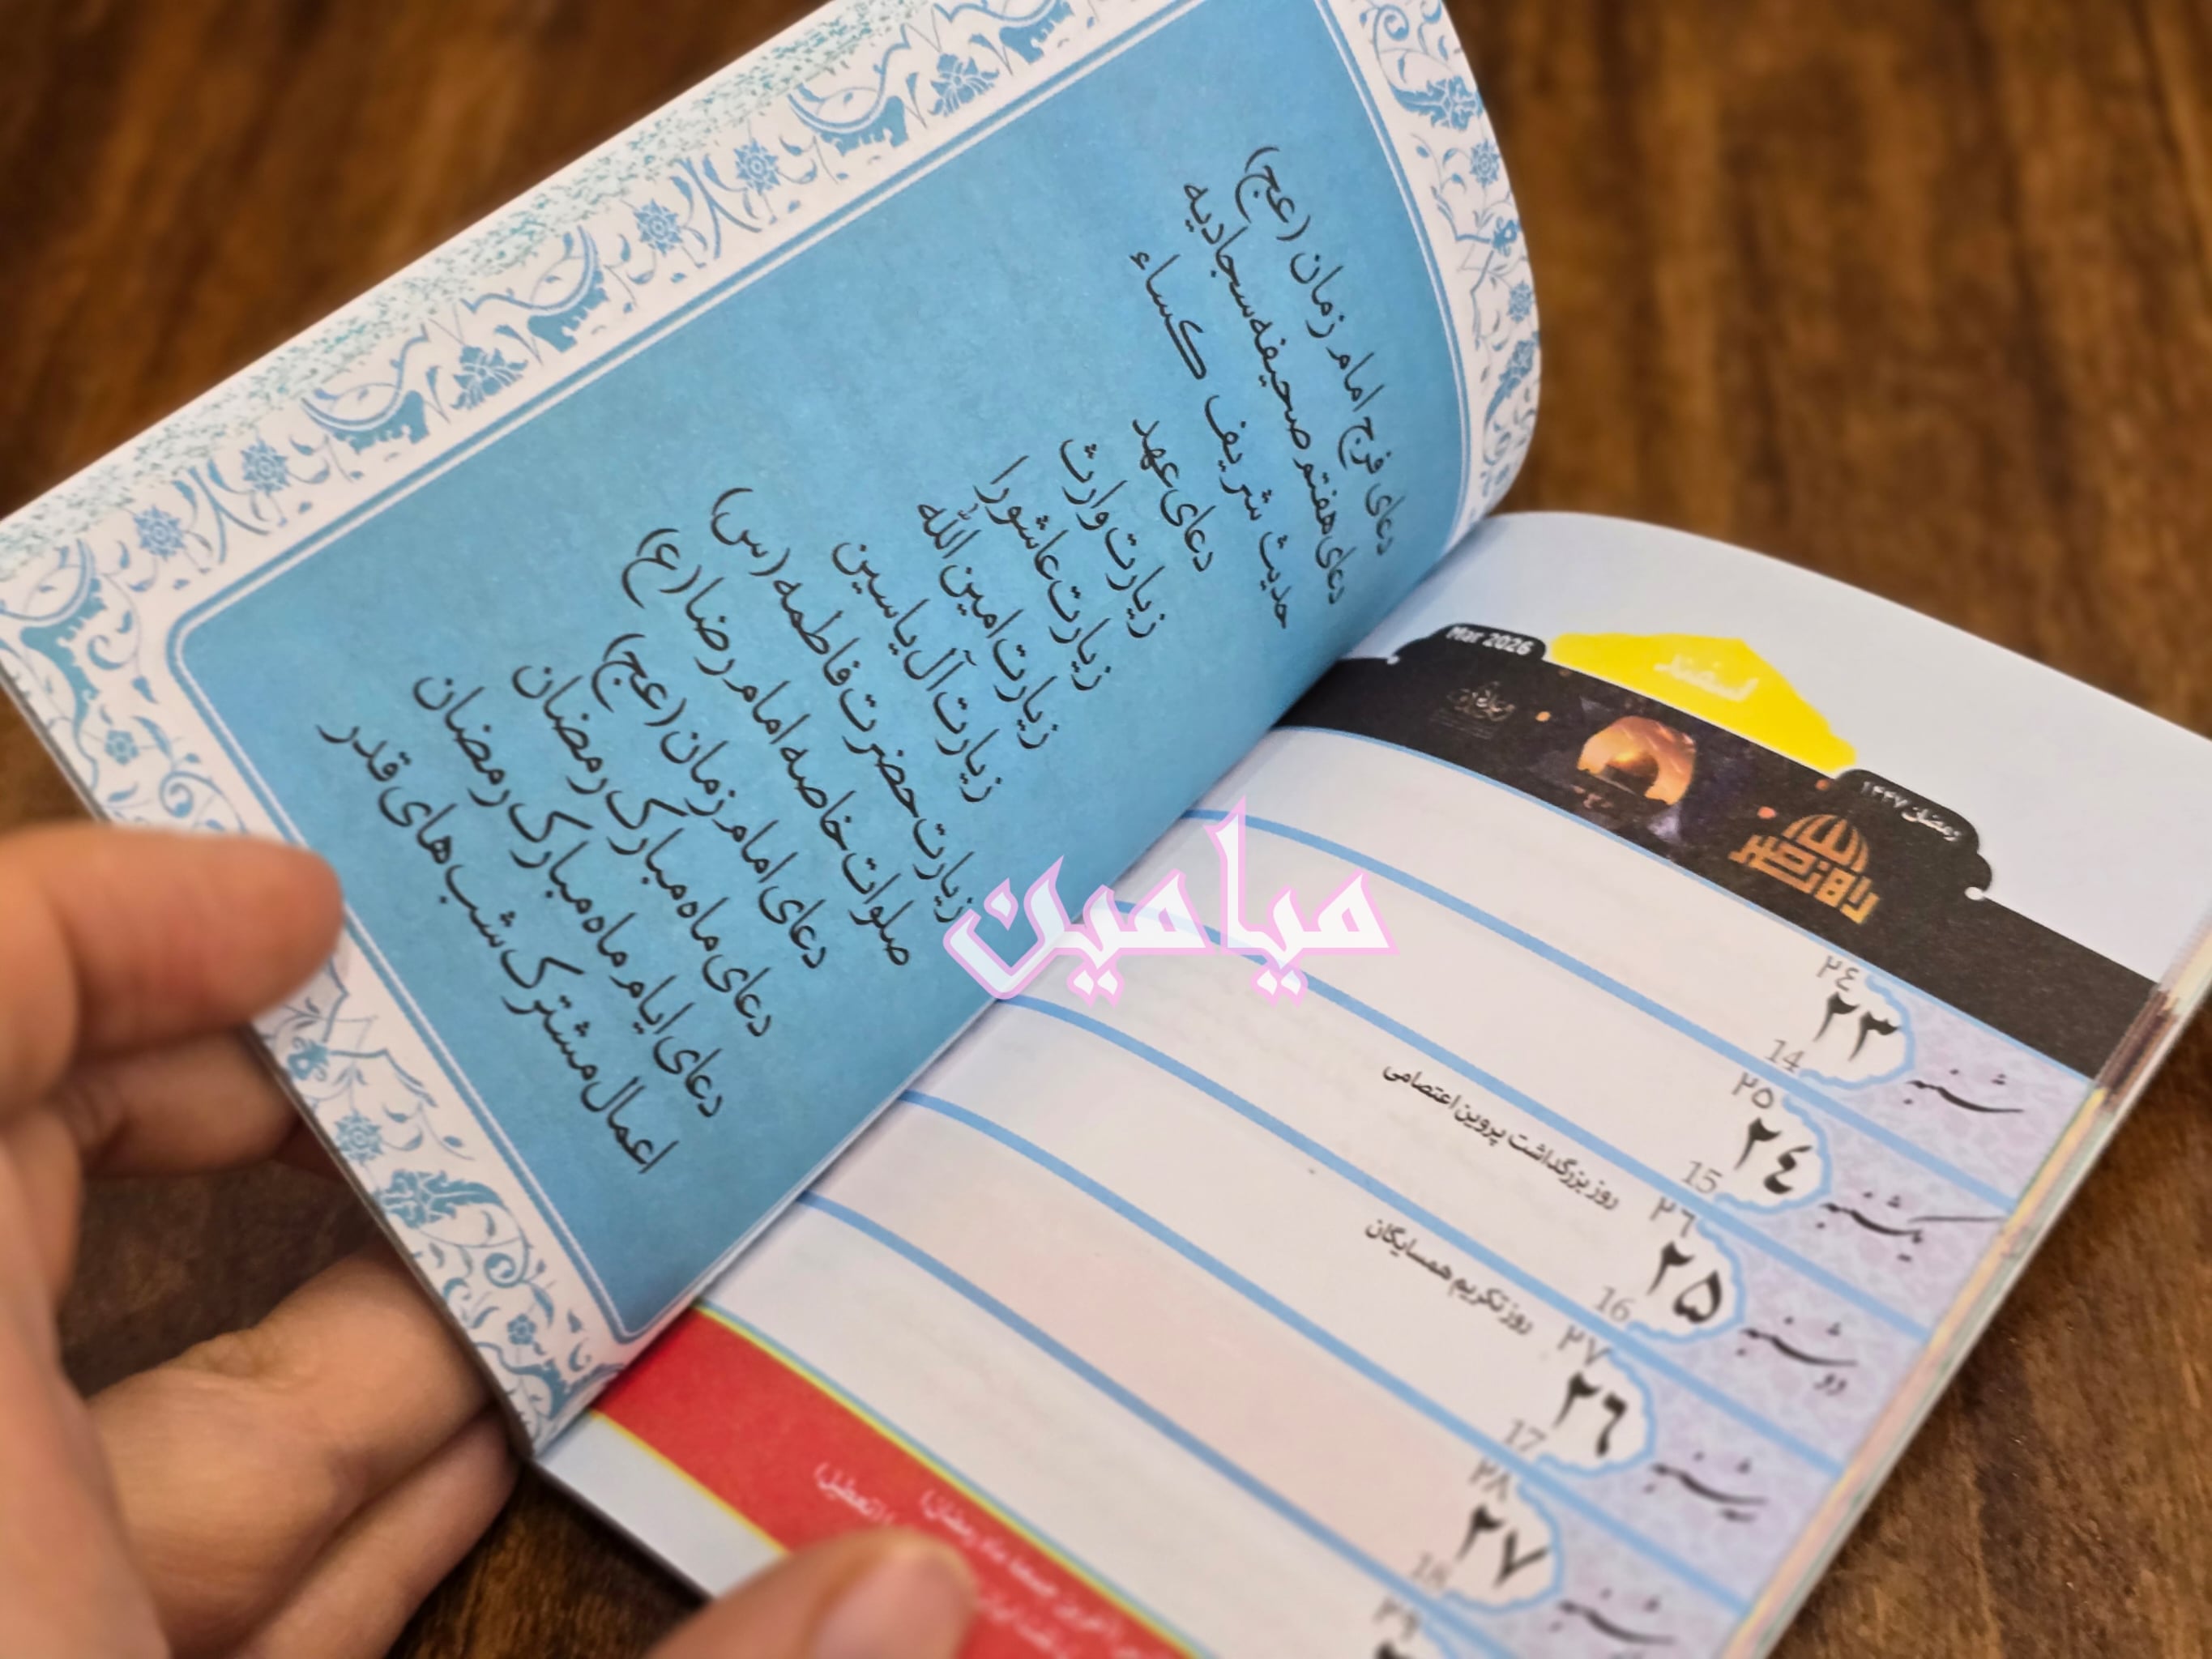 دعای فرج امام زمان (عج)
دعای هفتم صحیفه سجادیه
حدیث شریف کساء
دعای عهد
زیارت وارث
زیارت عاشورا
زیارت امین الله
زیارت آل یاسین
زیارت حضرت فاطمه (س)
صلوات خاصه امام رضا (ع)
دعای امام زمان (عج)
دعای ماه مبارک رمضان
دعای ایام ماه مبارک رمضان
اعمال مشترک شب های قدر
میامین
اسفند
Mar 2026
رمضان ۱۴۴۷
شنبه
۲۴
۲۳
14
یکشنبه
۲۵
۲۴
15
روز بزرگداشت پروین اعتصامی
دوشنبه
۲۶
۲۵
16
روز تکریم همسایگان
سه شنبه
۲۷
۲۶
17
شنبه
۲۸
۲۷
18
۲۹